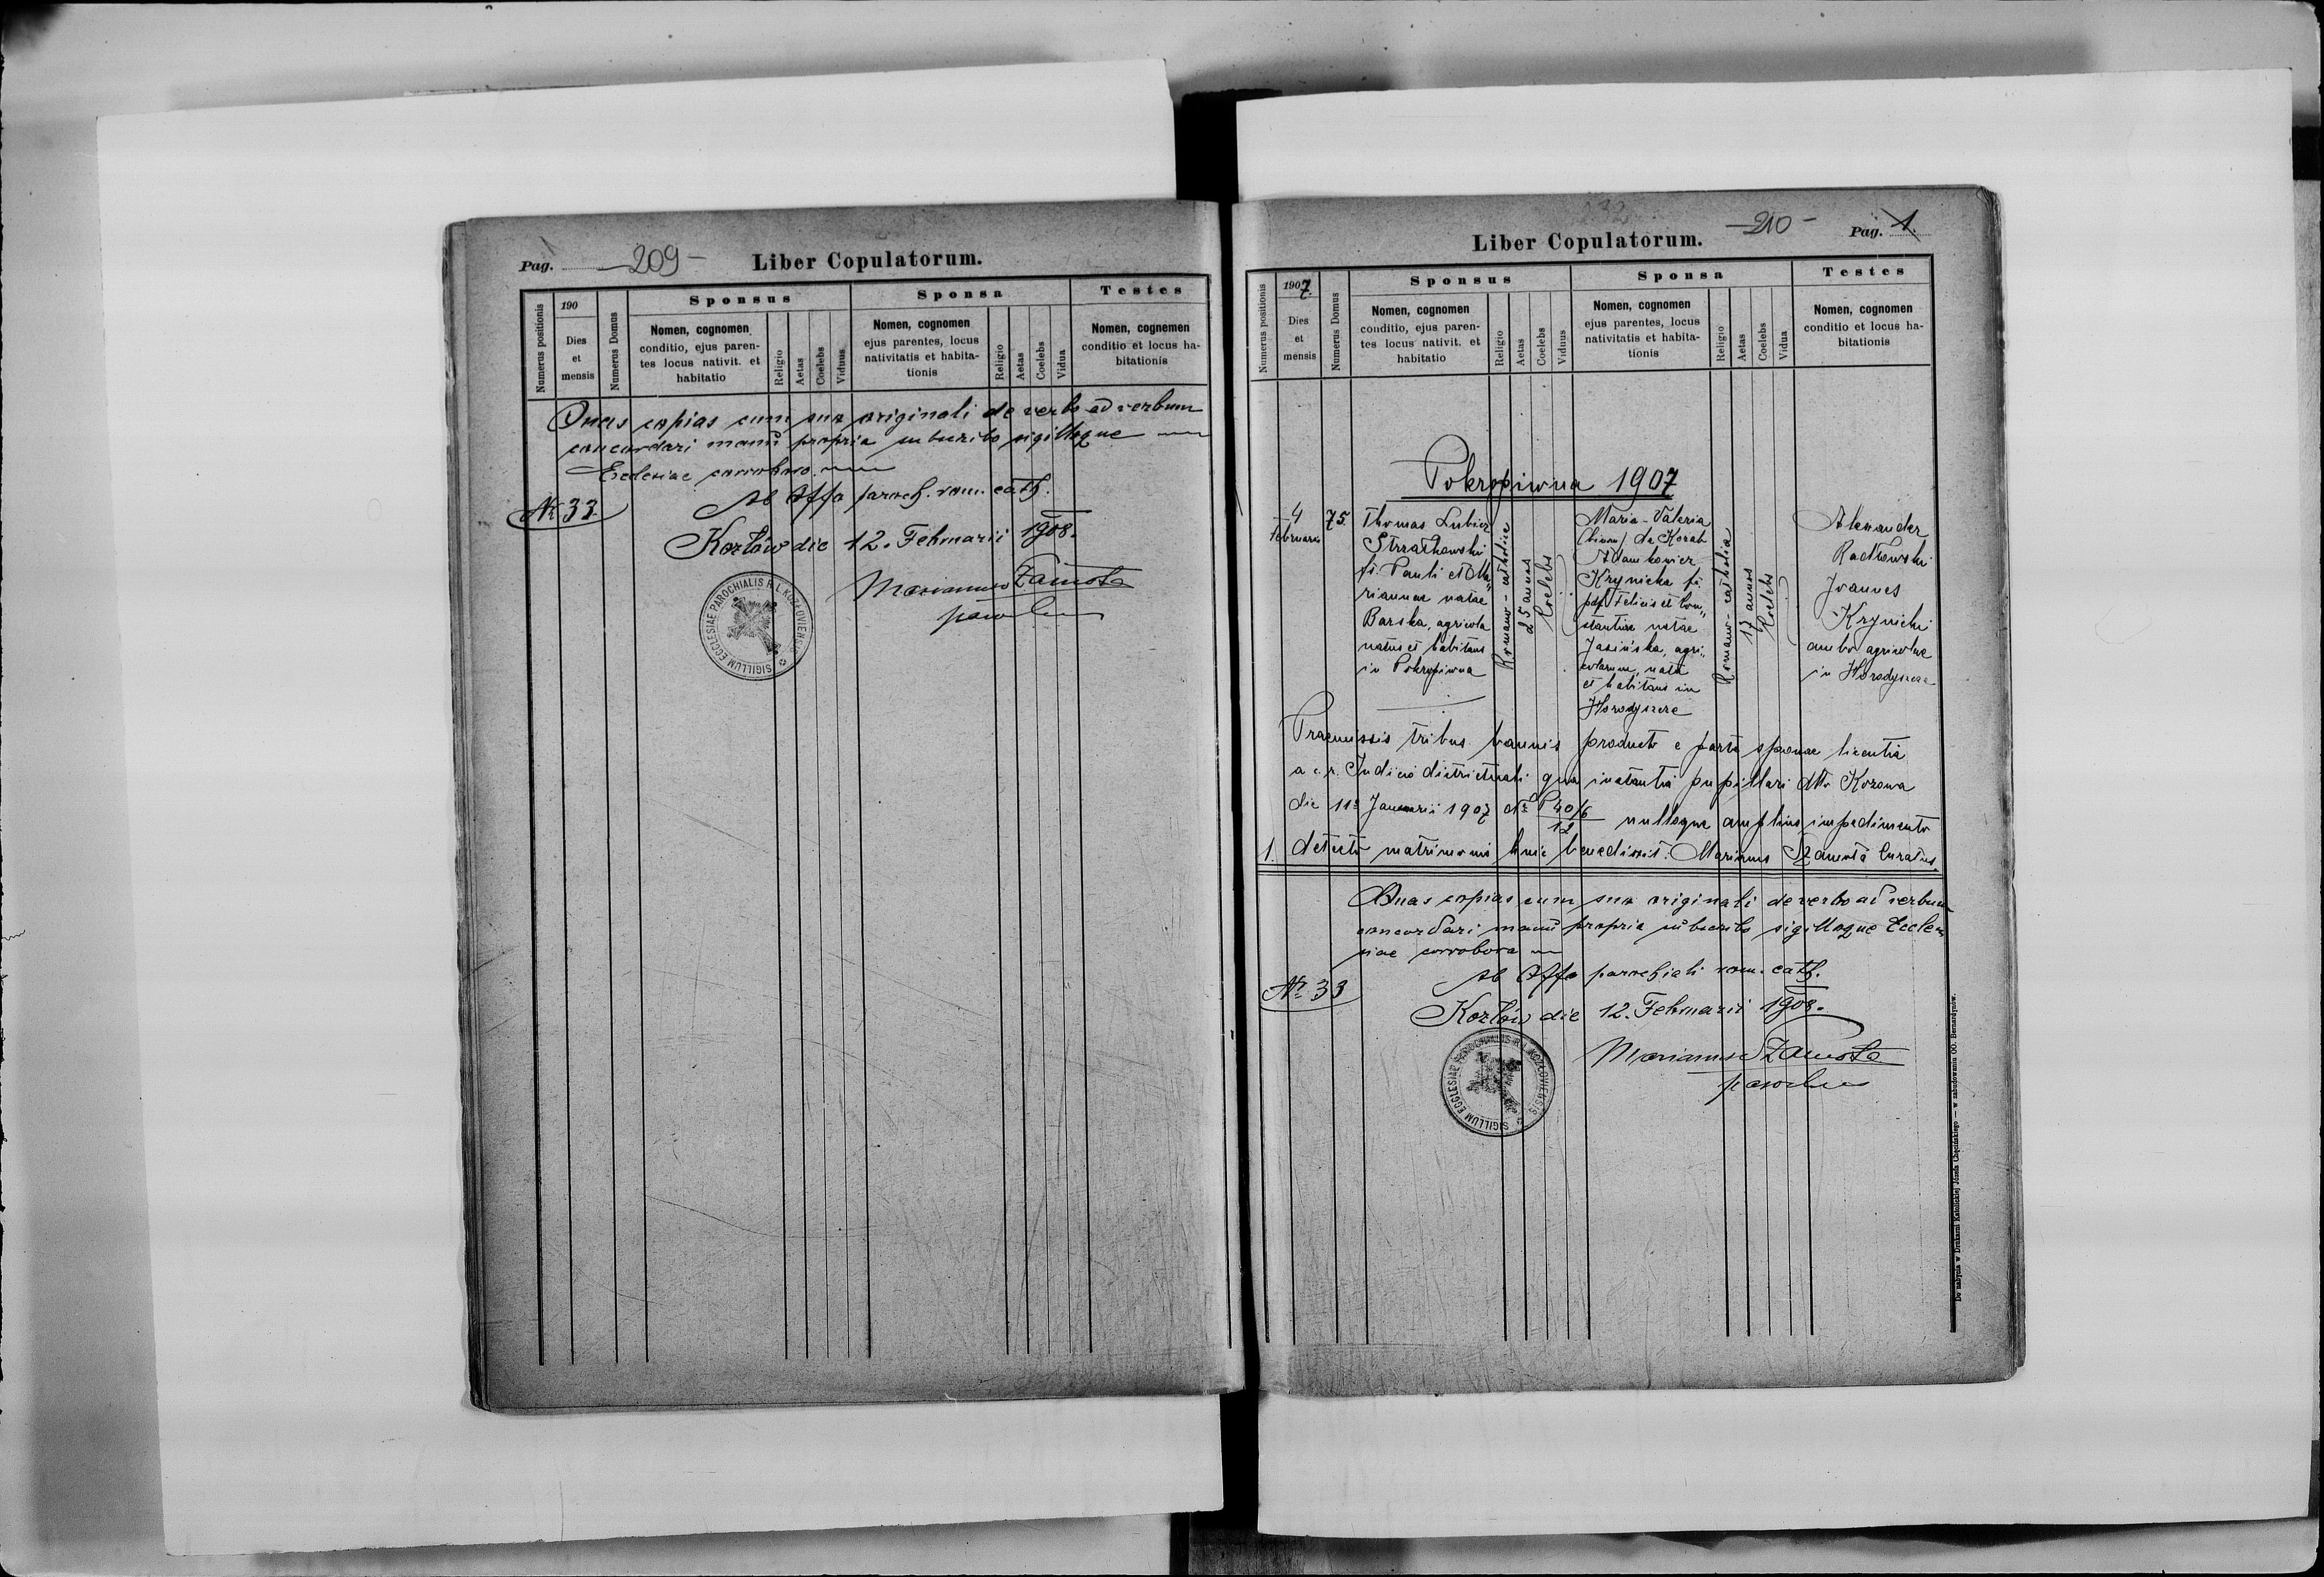 Pag. -209-
Liber Copulatorum.
Numerus positionis
190
Dies
et
mensis
Numerus Domus
Sponsus
Nomen, cognomen
conditio, ejus paren-
tes locus nativit. et
habitatio
Religio
Aetas
Coelebs
Viduus
Sponsa
Nomen, cognomen
ejus parentes, locus
nativitatis et habita-
tionis
Religio
Aetas
Coelebs
Vidua
Testes
Nomen, cognemen
conditio et locus ha-
bitationis
Quas copias cum suo originali de verbo ad verbum
concordari manu propria subscribo sigilloque
Ecclesiae corroboro.
№ 33.
Ab Offo paroch. rom. cath.
Kozłów die 12. Februarii 1908.
Marianus Szamota
parochus
SIGILLUM ECCLESIAE PAROCHIALIS R. L. KOZŁOVIENSIS
-210-
Pag. 1.
Liber Copulatorum.
Numerus positionis
1907.
Dies
et
mensis
Numerus Domus
Sponsus
Nomen, cognomen
conditio, ejus paren-
tes locus nativit. et
habitatio
Religio
Aetas
Coelebs
Viduus
Sponsa
Nomen, cognomen
ejus parentes, locus
nativitatis et habita-
tionis
Religio
Aetas
Coelebs
Vidua
Testes
Nomen, cognomen
conditio et locus ha-
bitationis
Pokropiwna 1907
4
Februarii
75.
Thomas Lubicz
Strzałkowski
fi. Pauli et Ma„
riannae natae
Barska, agricola
natus et habitans
in Pokropiwna
Romano-catholica
25 annos
Coelebs
Maria-Valeria
(binom) de Korab
Adamkowicz
Krynicka fi.
pdf Felicis et Con„
stantiae natae
Jasińska, agri„
colarum, nata
et habitans in
Horodyszcze
Romano-catholica
17 annos
Coelebs
Alexander
Radłowski
Joannes
Krynicki
ambo agricolae
in Horodyszcze
Praemissis tribus bannis producto e parte sponsae licentia
a c. r. Judicio districtuali qua instantia pupillari dtto Kozowa
die 11a Januarii 1907 № P 40/6
12
nulloque amplius impedimento
1. detecto matrimonio huic benedixit. Marianus Szamota Curatus.
Quas copias cum suo originali de verbo ad verbum
concordari manu propria subscribo sigilloque Eccle„
siae corroboro
Ab Offo parochiali rom. cath.
№ 33
Kozłów die 12. Februarii 1908.
Marianus Szamota
parochus
SIGILLUM ECCLESIAE PAROCHIALIS R. L. KOZŁOVIENSIS
Do nabycia w Drukarni Katolickiej Józefa Chęcińskiego — w zabudowaniu OO. Bernardynów.